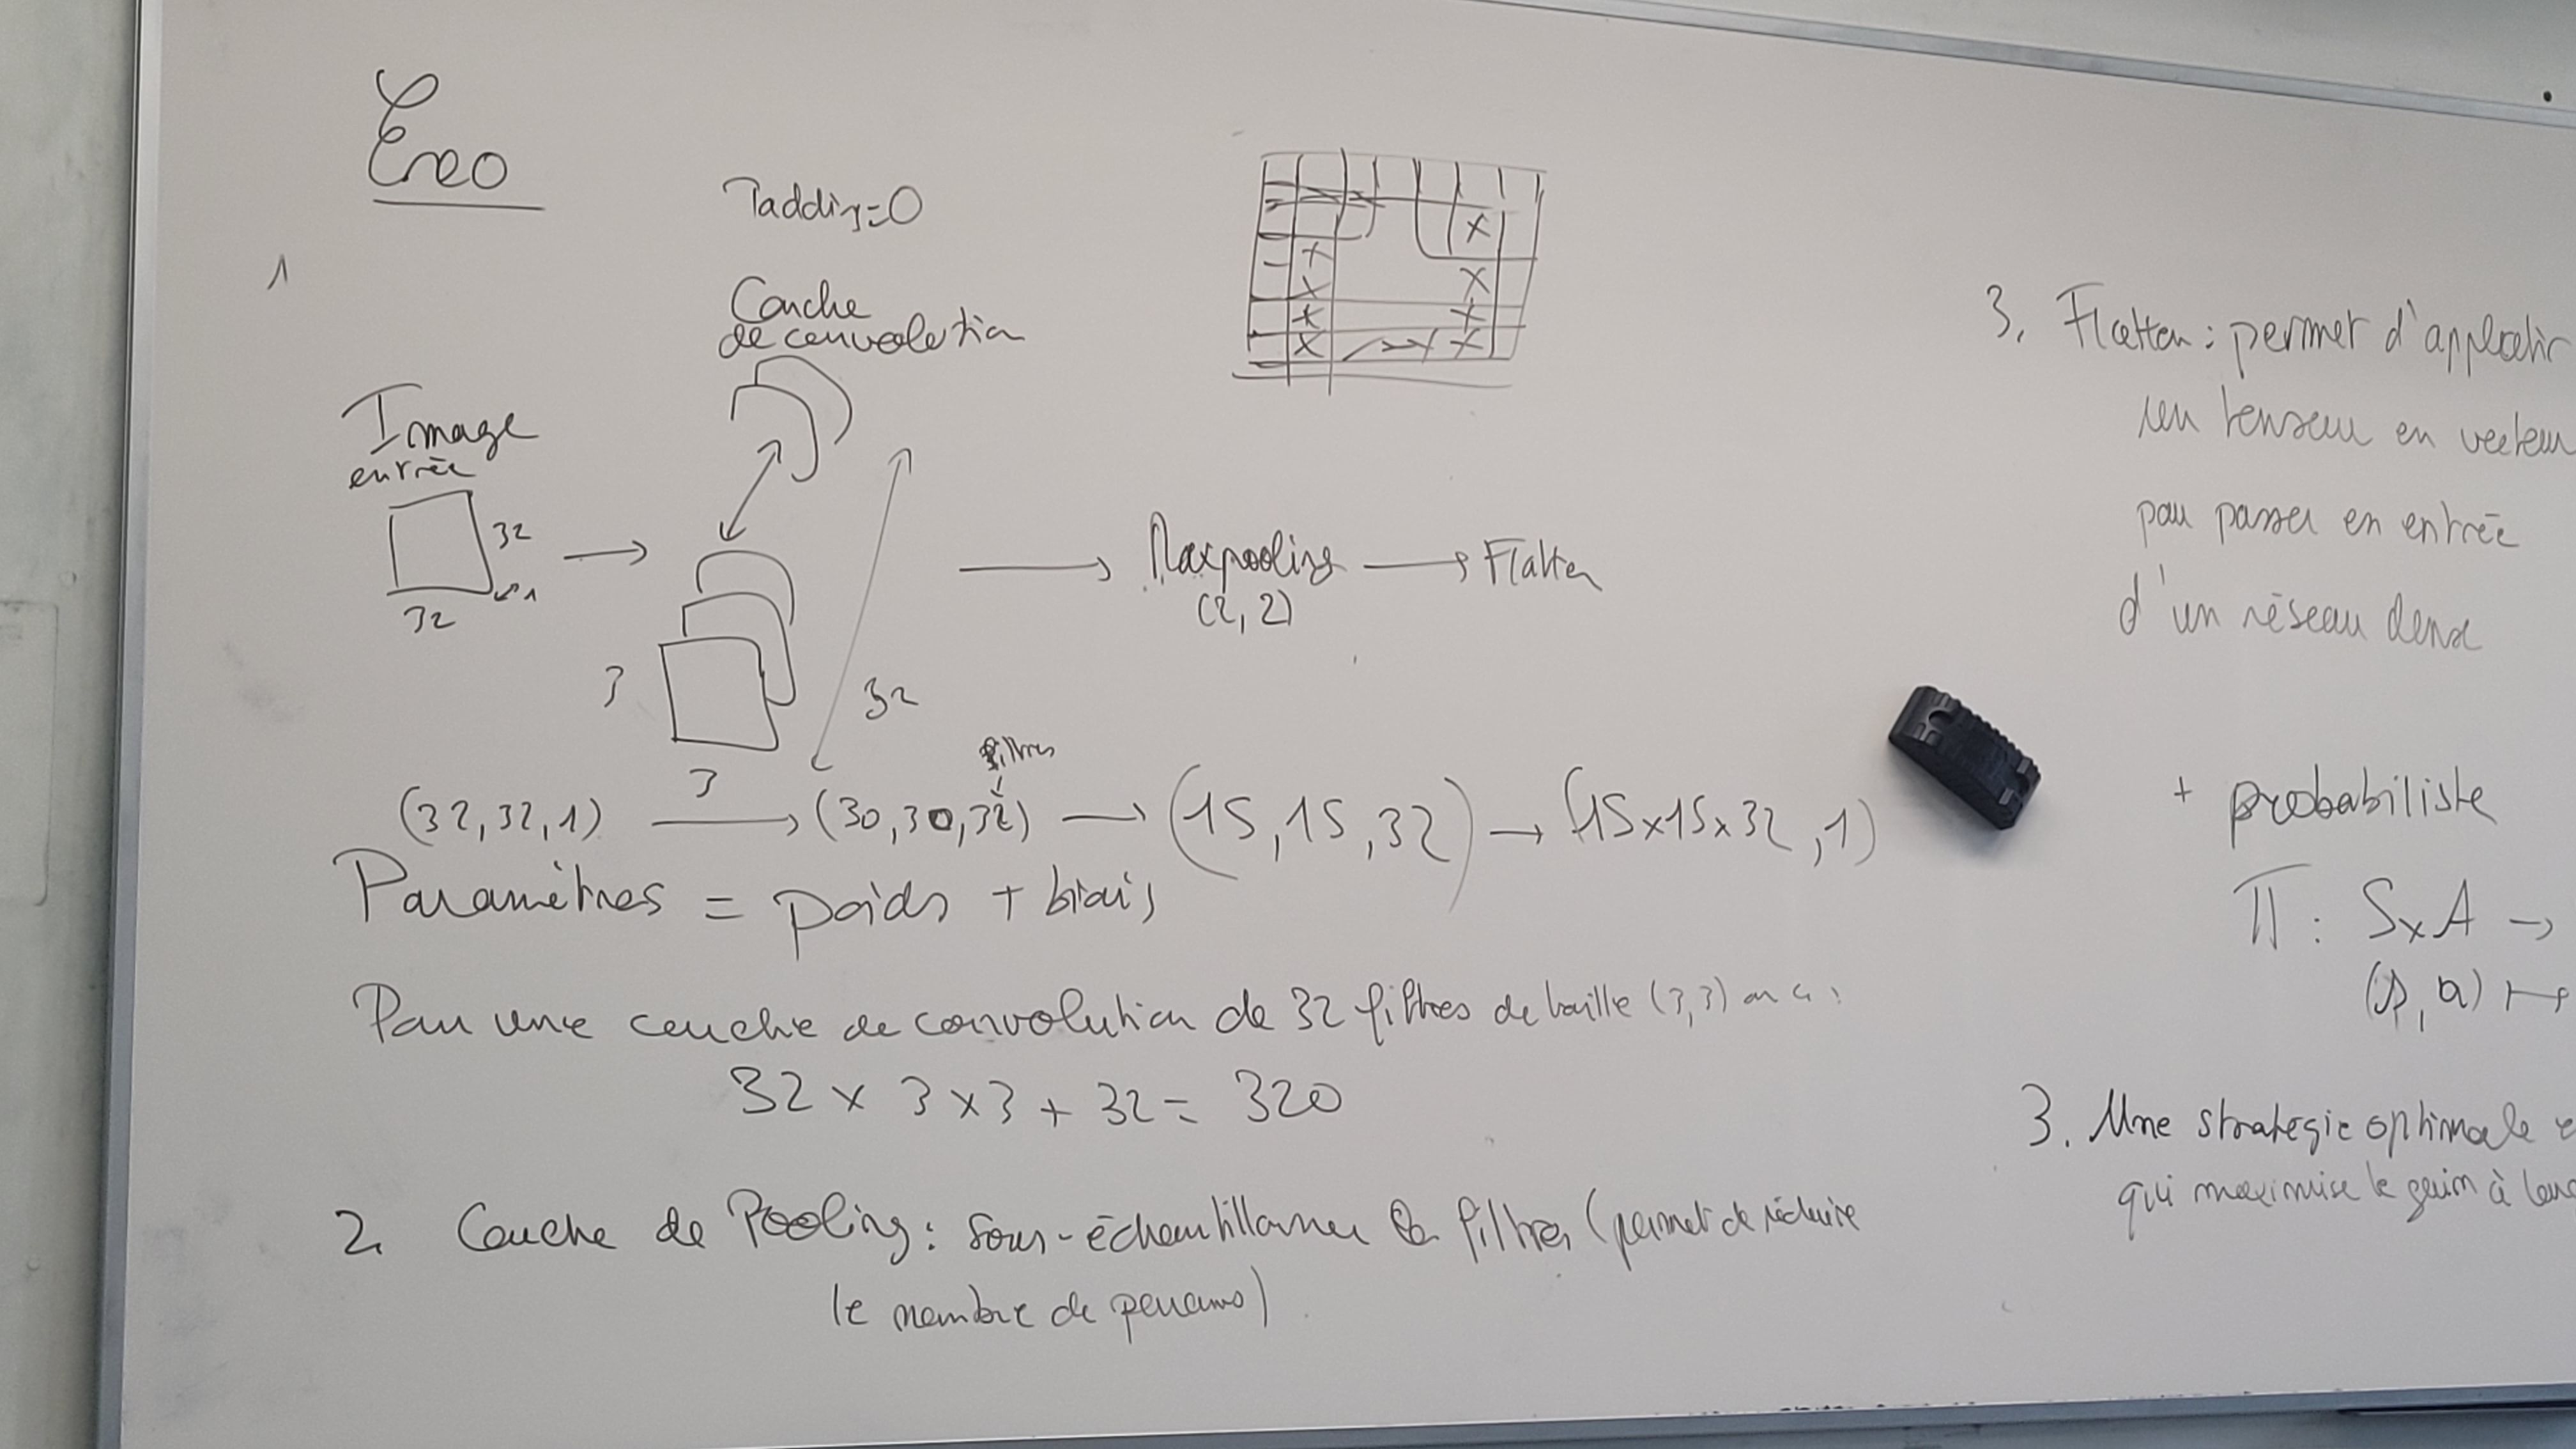 Exo
Padding=0
1
Couche
de convolution
Image
entrée
32
1
32
Maxpooling
(2,2)
Flatten
3
32
3
filtres
(32,32,1) → (30,30,32) → (15,15,32) → (15x15x32,1)
Paramètres = poids + biais
Pour une couche de convolution de 32 filtres de taille (3,3) on a :
32 x 3 x 3 + 32 = 320
2. Couche de Pooling : Sous-échantillonner les filtres (permet de réduire
le nombre de params)
3. Flatten : permet d'applatir
un tenseur en vecteur
pour passer en entrée
d'un réseau dense
+ probabiliste
Π : S x A →
(s, a) ↦
3. Une stratégie optimale
qui maximise le gain à